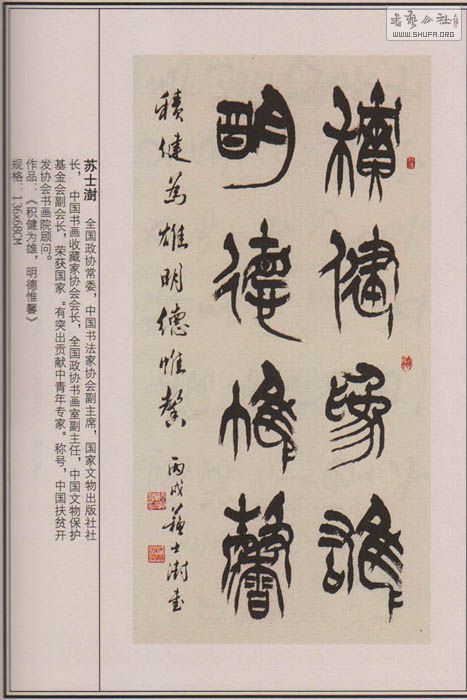 書藝公社
WWW.SHUFA.ORG
積健為雄
明德惟馨
積健為雄明德惟馨 丙戌蘇士澍書
苏士澍 全国政协常委，中国书法家协会副主席，国家文物出版社社
长，中国书画收藏家协会会长，全国政协书画室副主任，中国文物保护
基金会副会长，荣获国家“有突出贡献中青年专家”称号，中国扶贫开
发协会书画院顾问。
作品：《积健为雄，明德惟馨》
规格：136x68CM